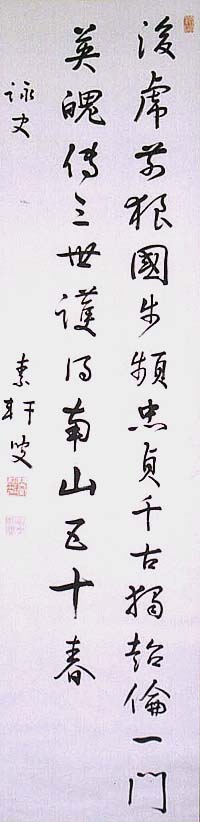 後虎前狼國步頻忠貞千古獨超倫一門
英魄傳三世護得南山五十春
詠史
素軒叟